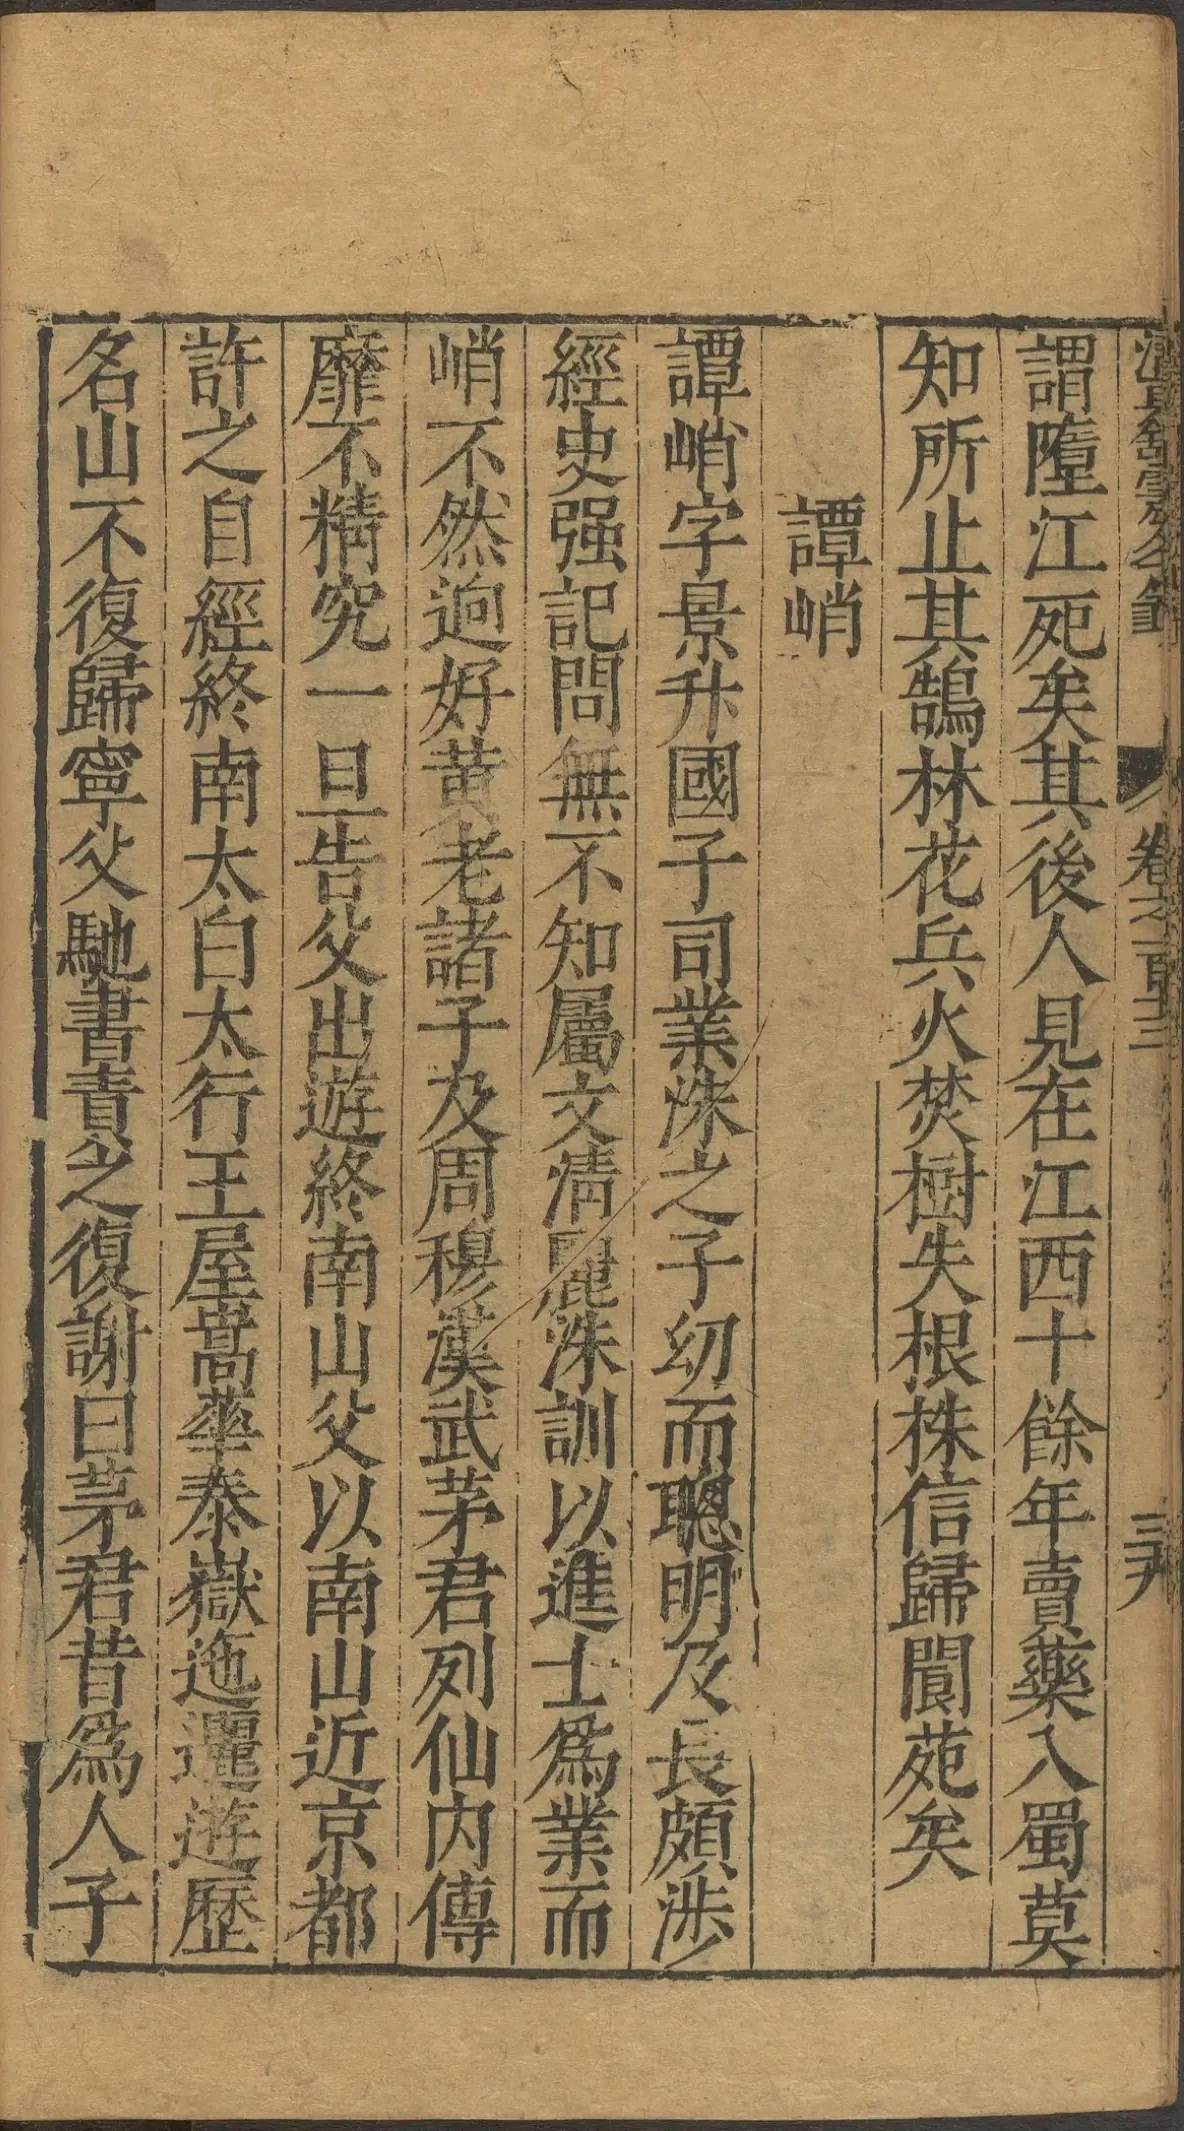 卷之一百十三
謂隋江死矣其後人見在江西十餘年賣藥入蜀莫
知所止其鶴林花兵火焚樹失根株信歸閬苑矣
譚峭
譚峭字景升國子司業洙之子幼而聰明及長頗涉
經史强記問無不知屬文清麗洙訓以進士爲業而
峭不然逈好黄老諸子及周穆漢武茅君列仙内傳
靡不精究一旦告父出遊終南山父以南山近京都
許之自經終南太白太行王屋嵩華泰嶽迤邐遊歷
名山不復歸寧父馳書責之復謝曰茅君昔爲人子